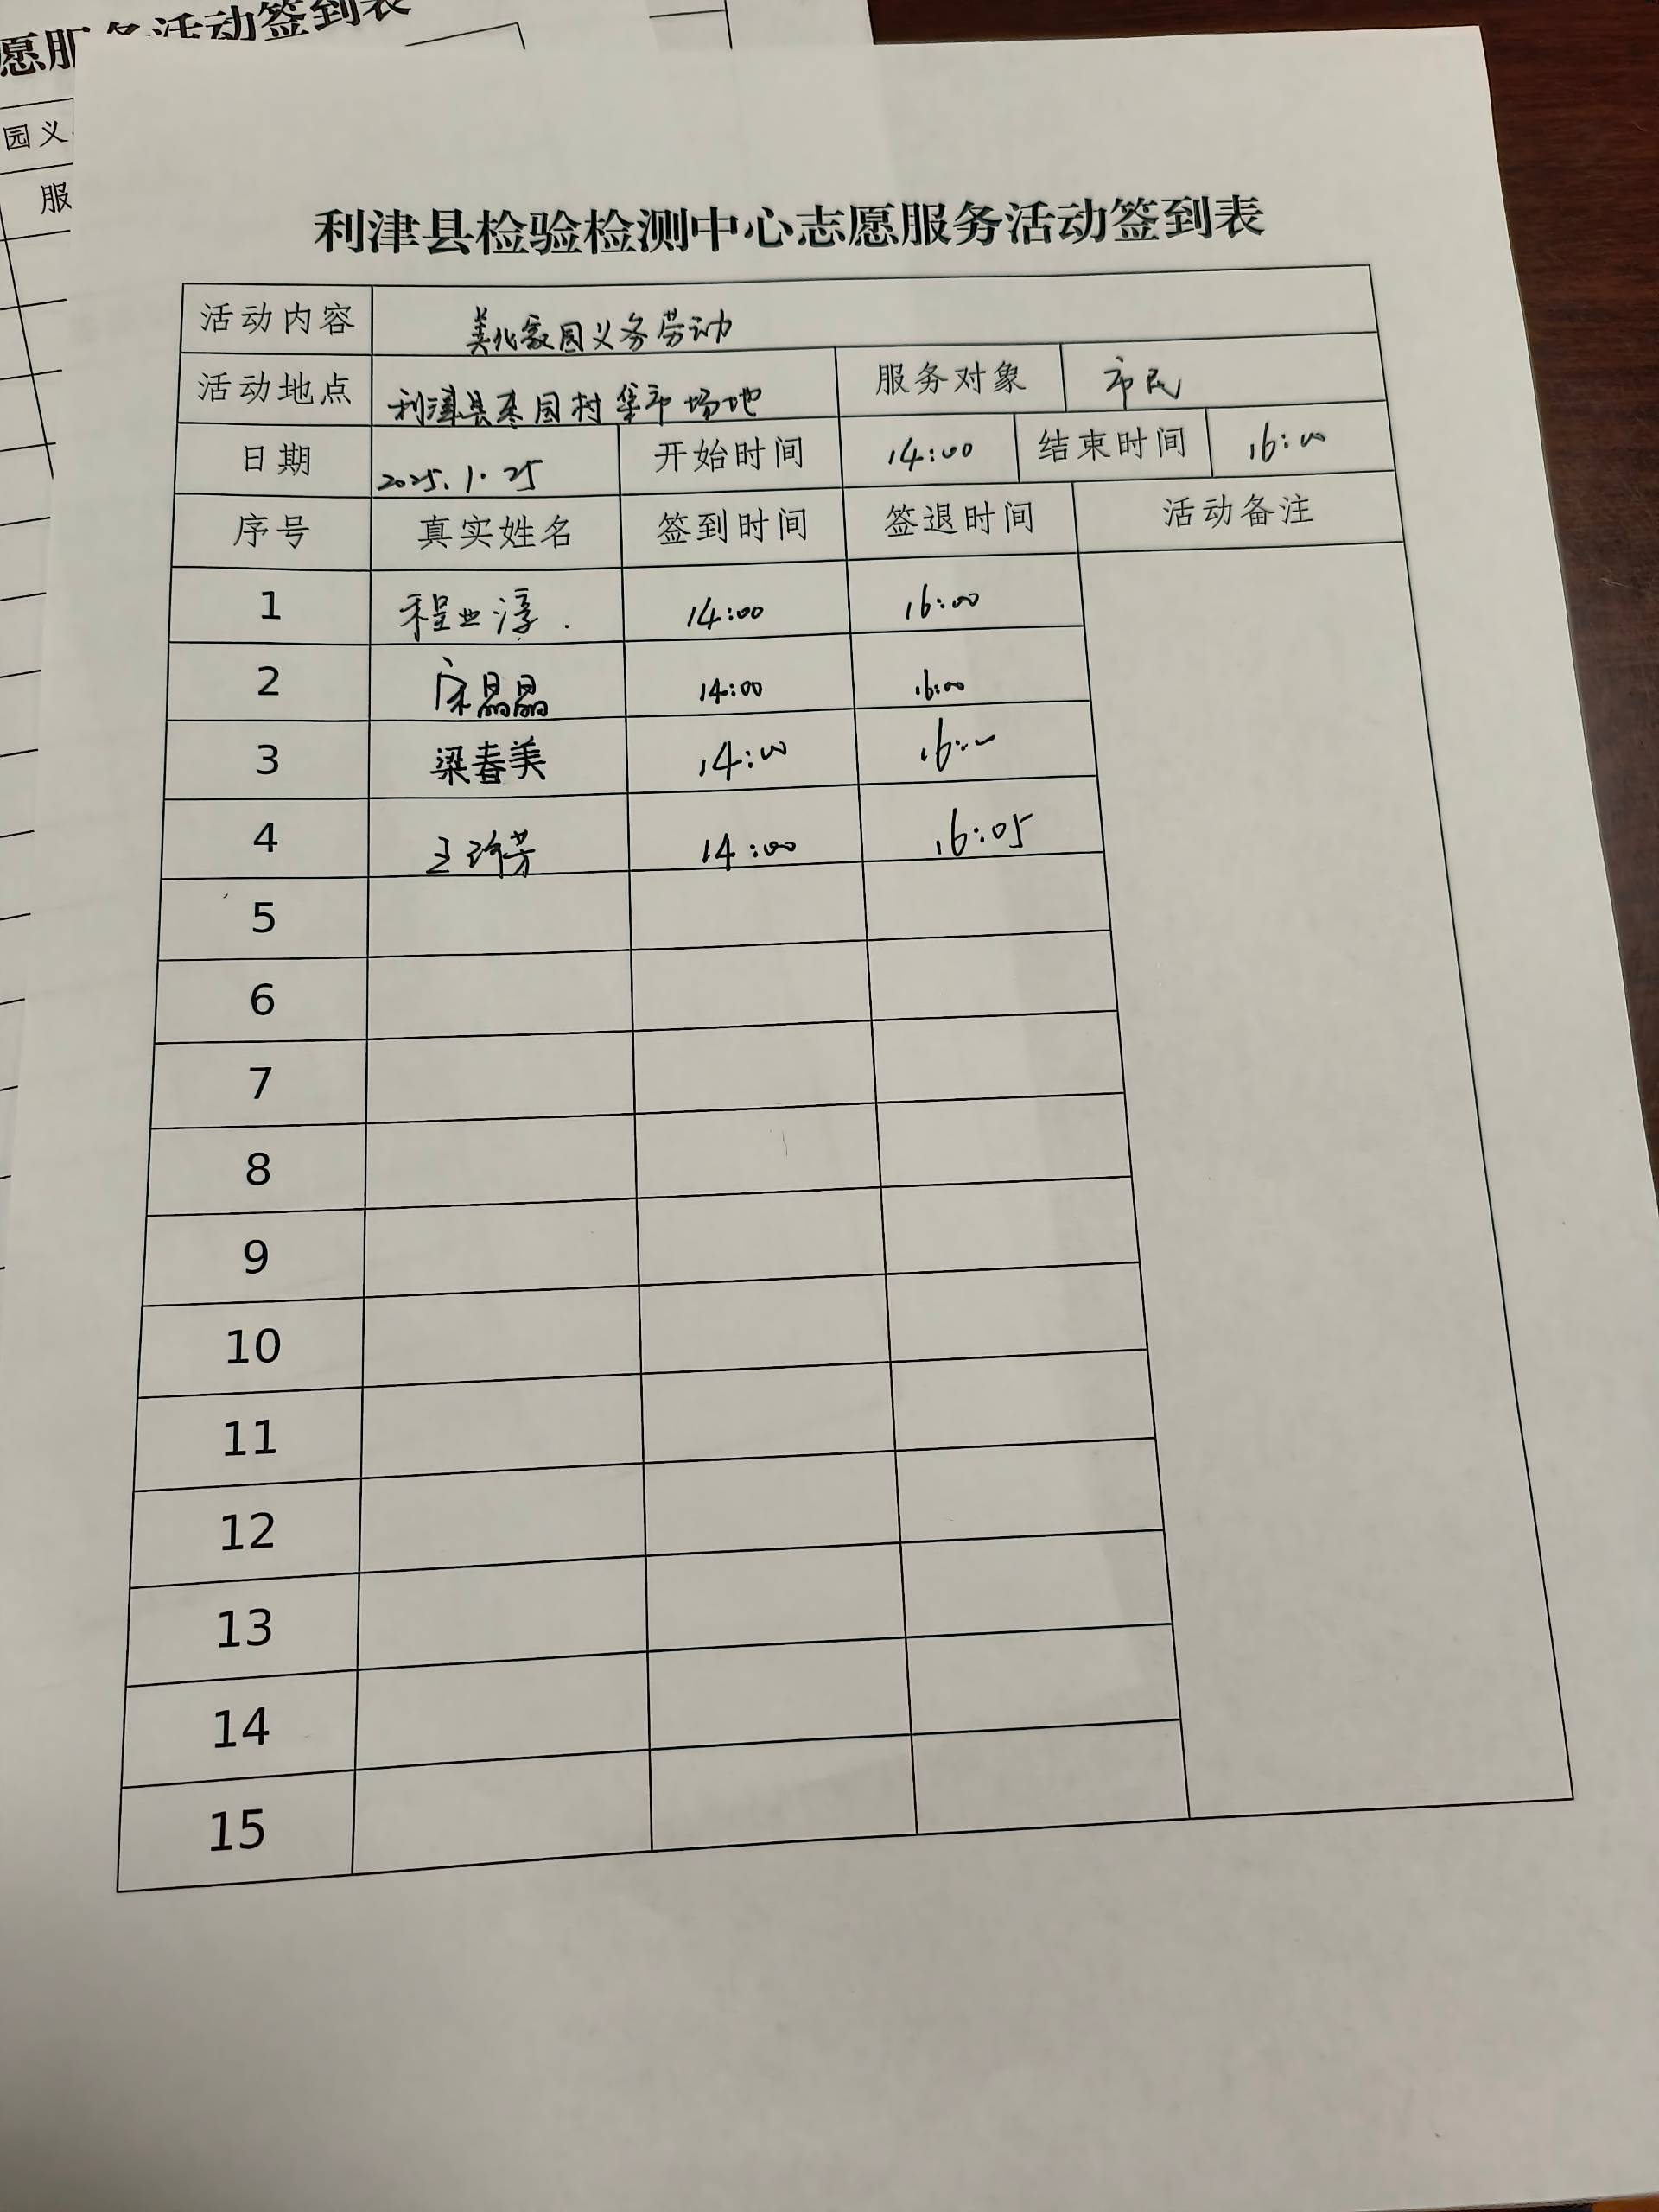 愿服务活动签到表
园义
服
利津县检验检测中心志愿服务活动签到表
活动内容 美化家园义务劳动
活动地点 利津县枣园村集市场地 服务对象 市民
日期 2025.1.25 开始时间 14:00 结束时间 16:00
序号 真实姓名 签到时间 签退时间 活动备注
1 程业淳 14:00 16:00
2 宋晶晶 14:00 16:00
3 梁春美 14:00 16:00
4 王 芳 14:00 16:05
5
6
7
8
9
10
11
12
13
14
15